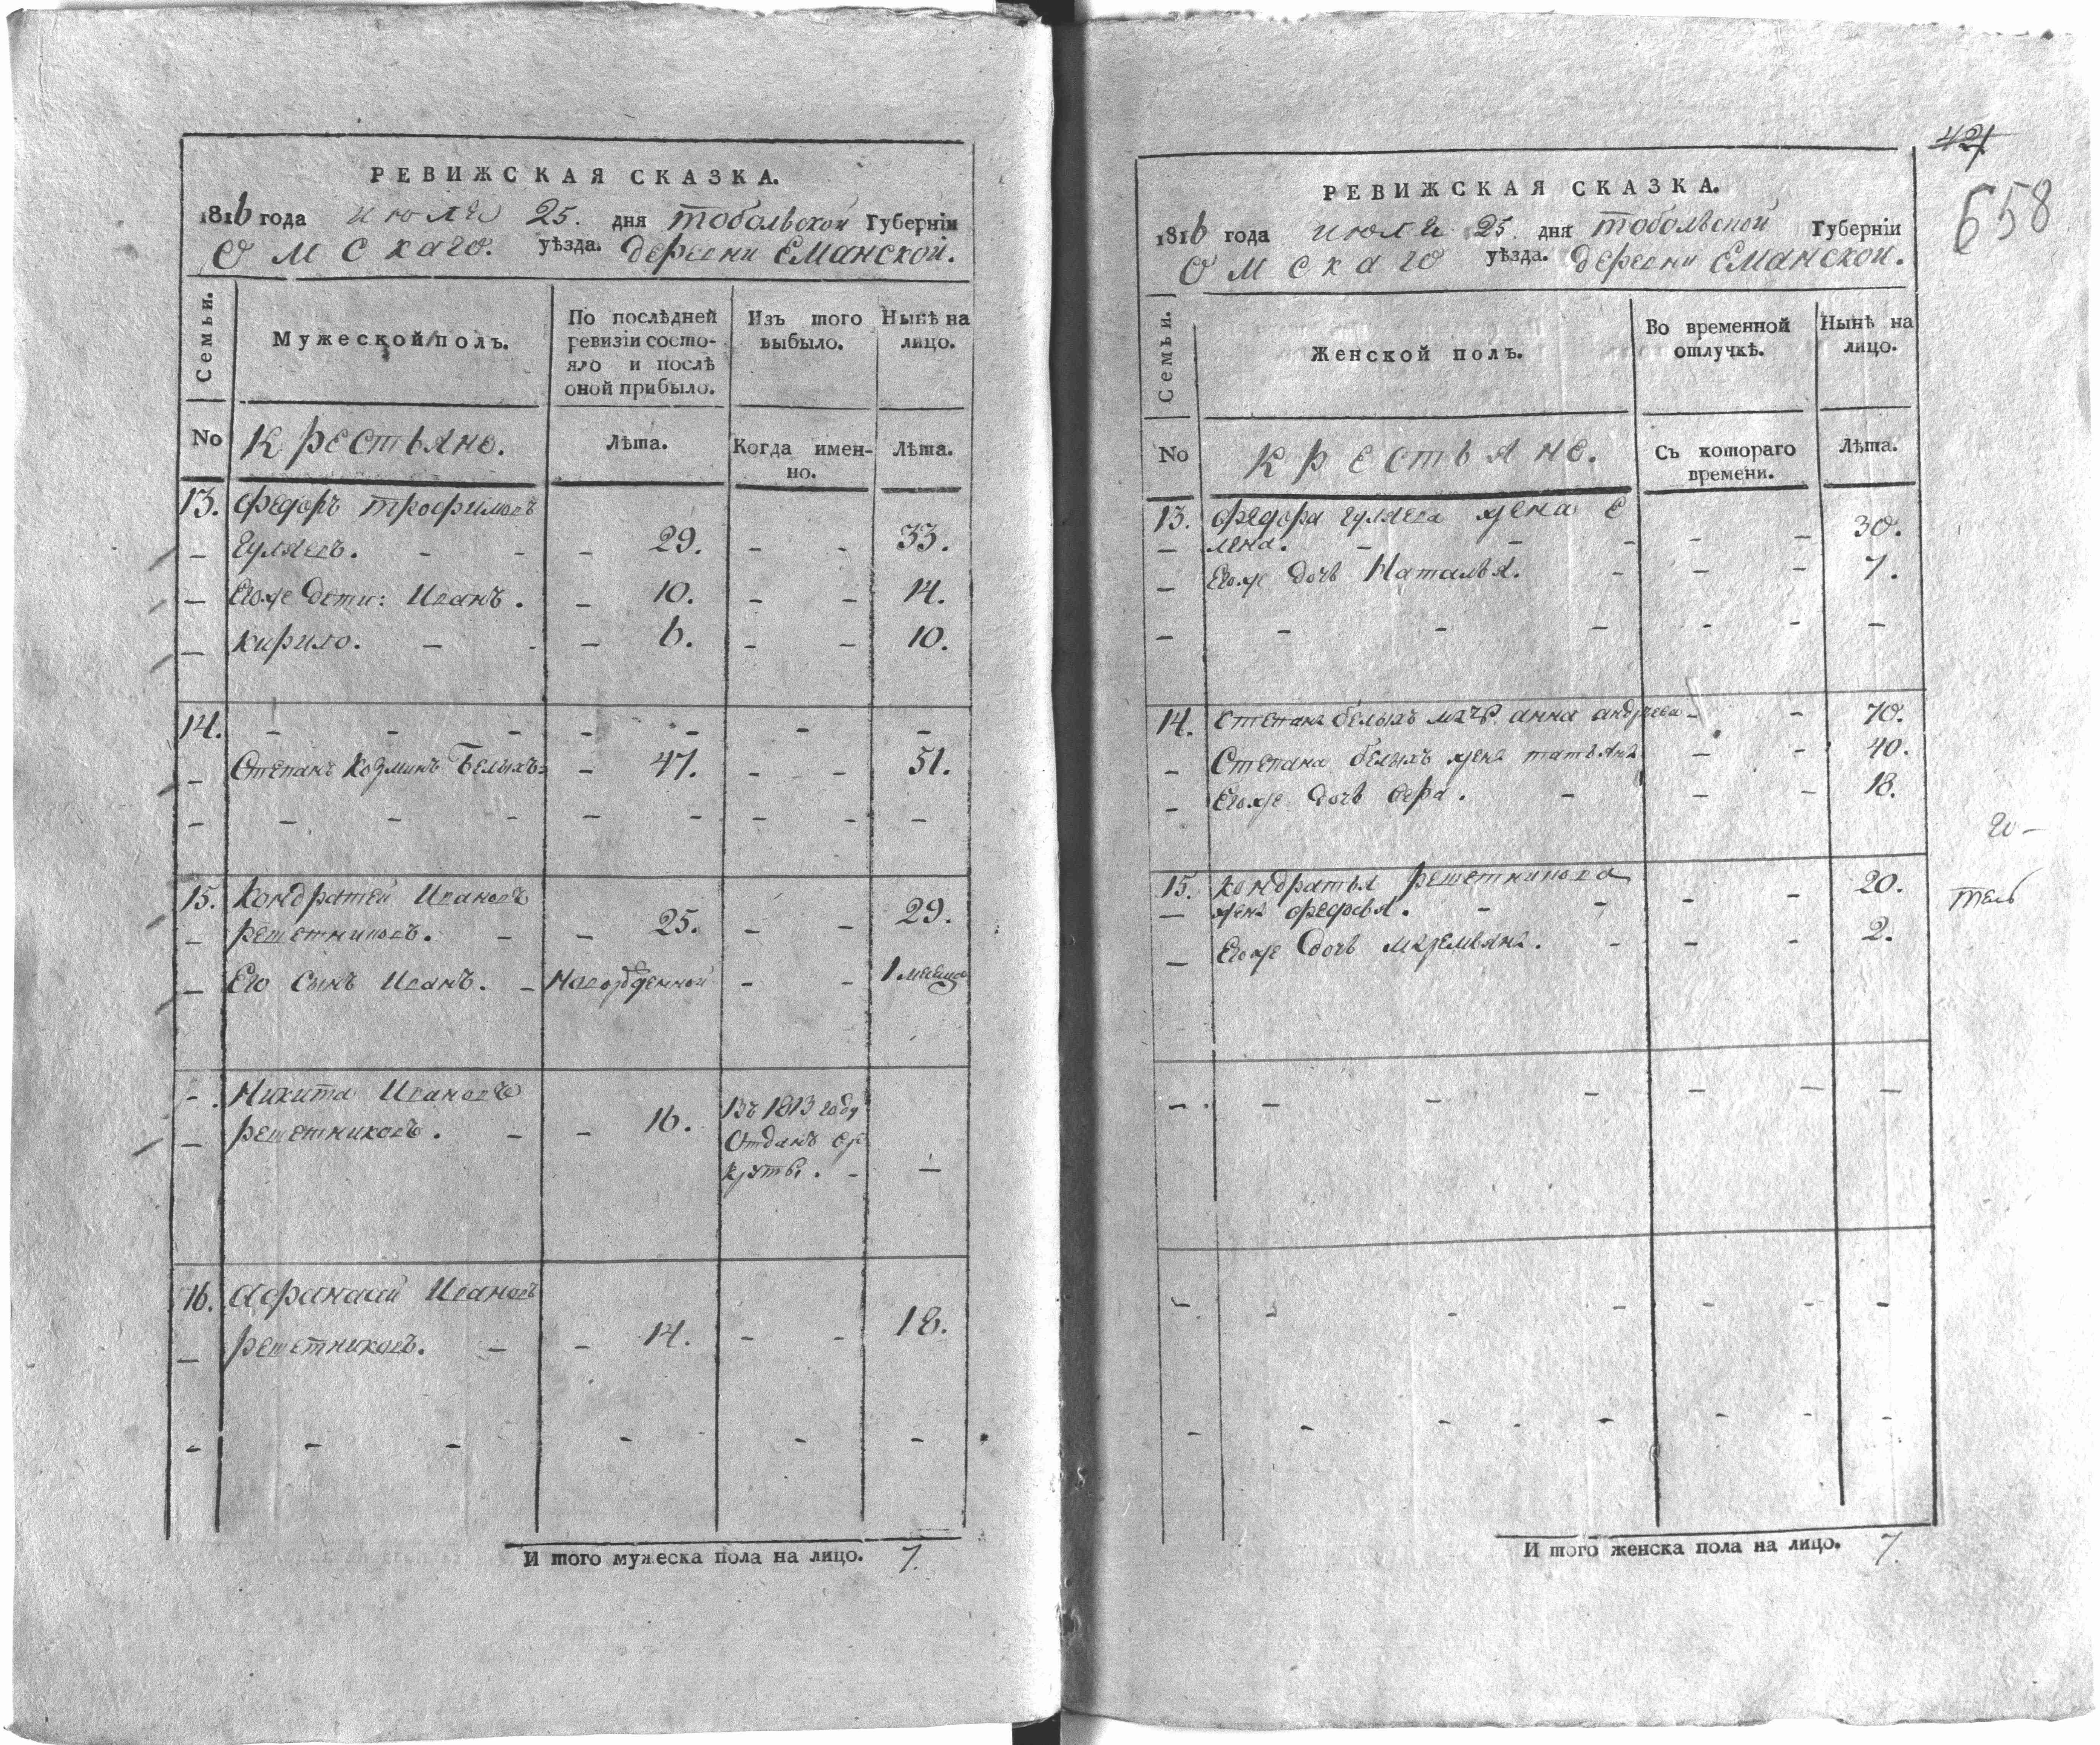 РЕВИЖСКАЯ СКАЗКА.
1816 года июля 25. дня тобольской Губерніи
Омскаго. уѣзда. деревни Еманской.
Семьи.
Мужеской полъ.
По послѣдней
ревизіи состо-
яло и послѣ
оной прибыло.
Изъ того
выбыло.
Нынѣ на
лицо.
No
Крестьяно.
Лѣта.
Когда имен-
но.
Лѣта.
13. Федоръ трофимовъ
— Гуляевъ. - - - 29. - - 33.
— Егоже дети: Иванъ. - 10. - - 14.
— кирило. - - - 6. - - 10.
14. - - - - - - -
- Степанъ Козминъ Белыхъ - 47. - - 51.
- - - - - - - - -
15. Кондратей Ивановъ
- решетниковъ. - - 25. - - 29.
- Его сынъ Иванъ. - Новорожденной - - 1 месяца
- . Никита Ивановъ
- решетниковъ. - - 16. Въ 1813 году
Отданъ ре
круты. - —
16. Афанасей Ивановъ
- решетниковъ. - - 14. - - 18.
- - - - - -
И того мужеска пола на лицо. 7.
42
658
РЕВИЖСКАЯ СКАЗКА.
1816 года июля 25. дня тобольской Губерніи
Омскаго уѣзда. деревни Еманской.
Семьи.
Женской полъ.
Во временной
отлучкѣ.
Нынѣ на
лицо.
No
крестьяне.
Съ котораго
времени.
Лѣта.
13. федора гуляева жена е
— лена. - - - - - 30.
— Егоже дочь Наталья. - - - 7.
- - - - - - -
14. степана белыхъ мать анна андреева - - 70.
- Степана белыхъ жена татьяна - - 40.
- Егоже дочь вера. - - - 18.
го-
15. кондратья решетникова
— жена федосья. - - - - 20.
тель
— Егоже дочь маремьяна. - - - 2.
- . - - - - - -
- - - - - - -
- - - - - - - -
И того женска пола на лицо. 7.